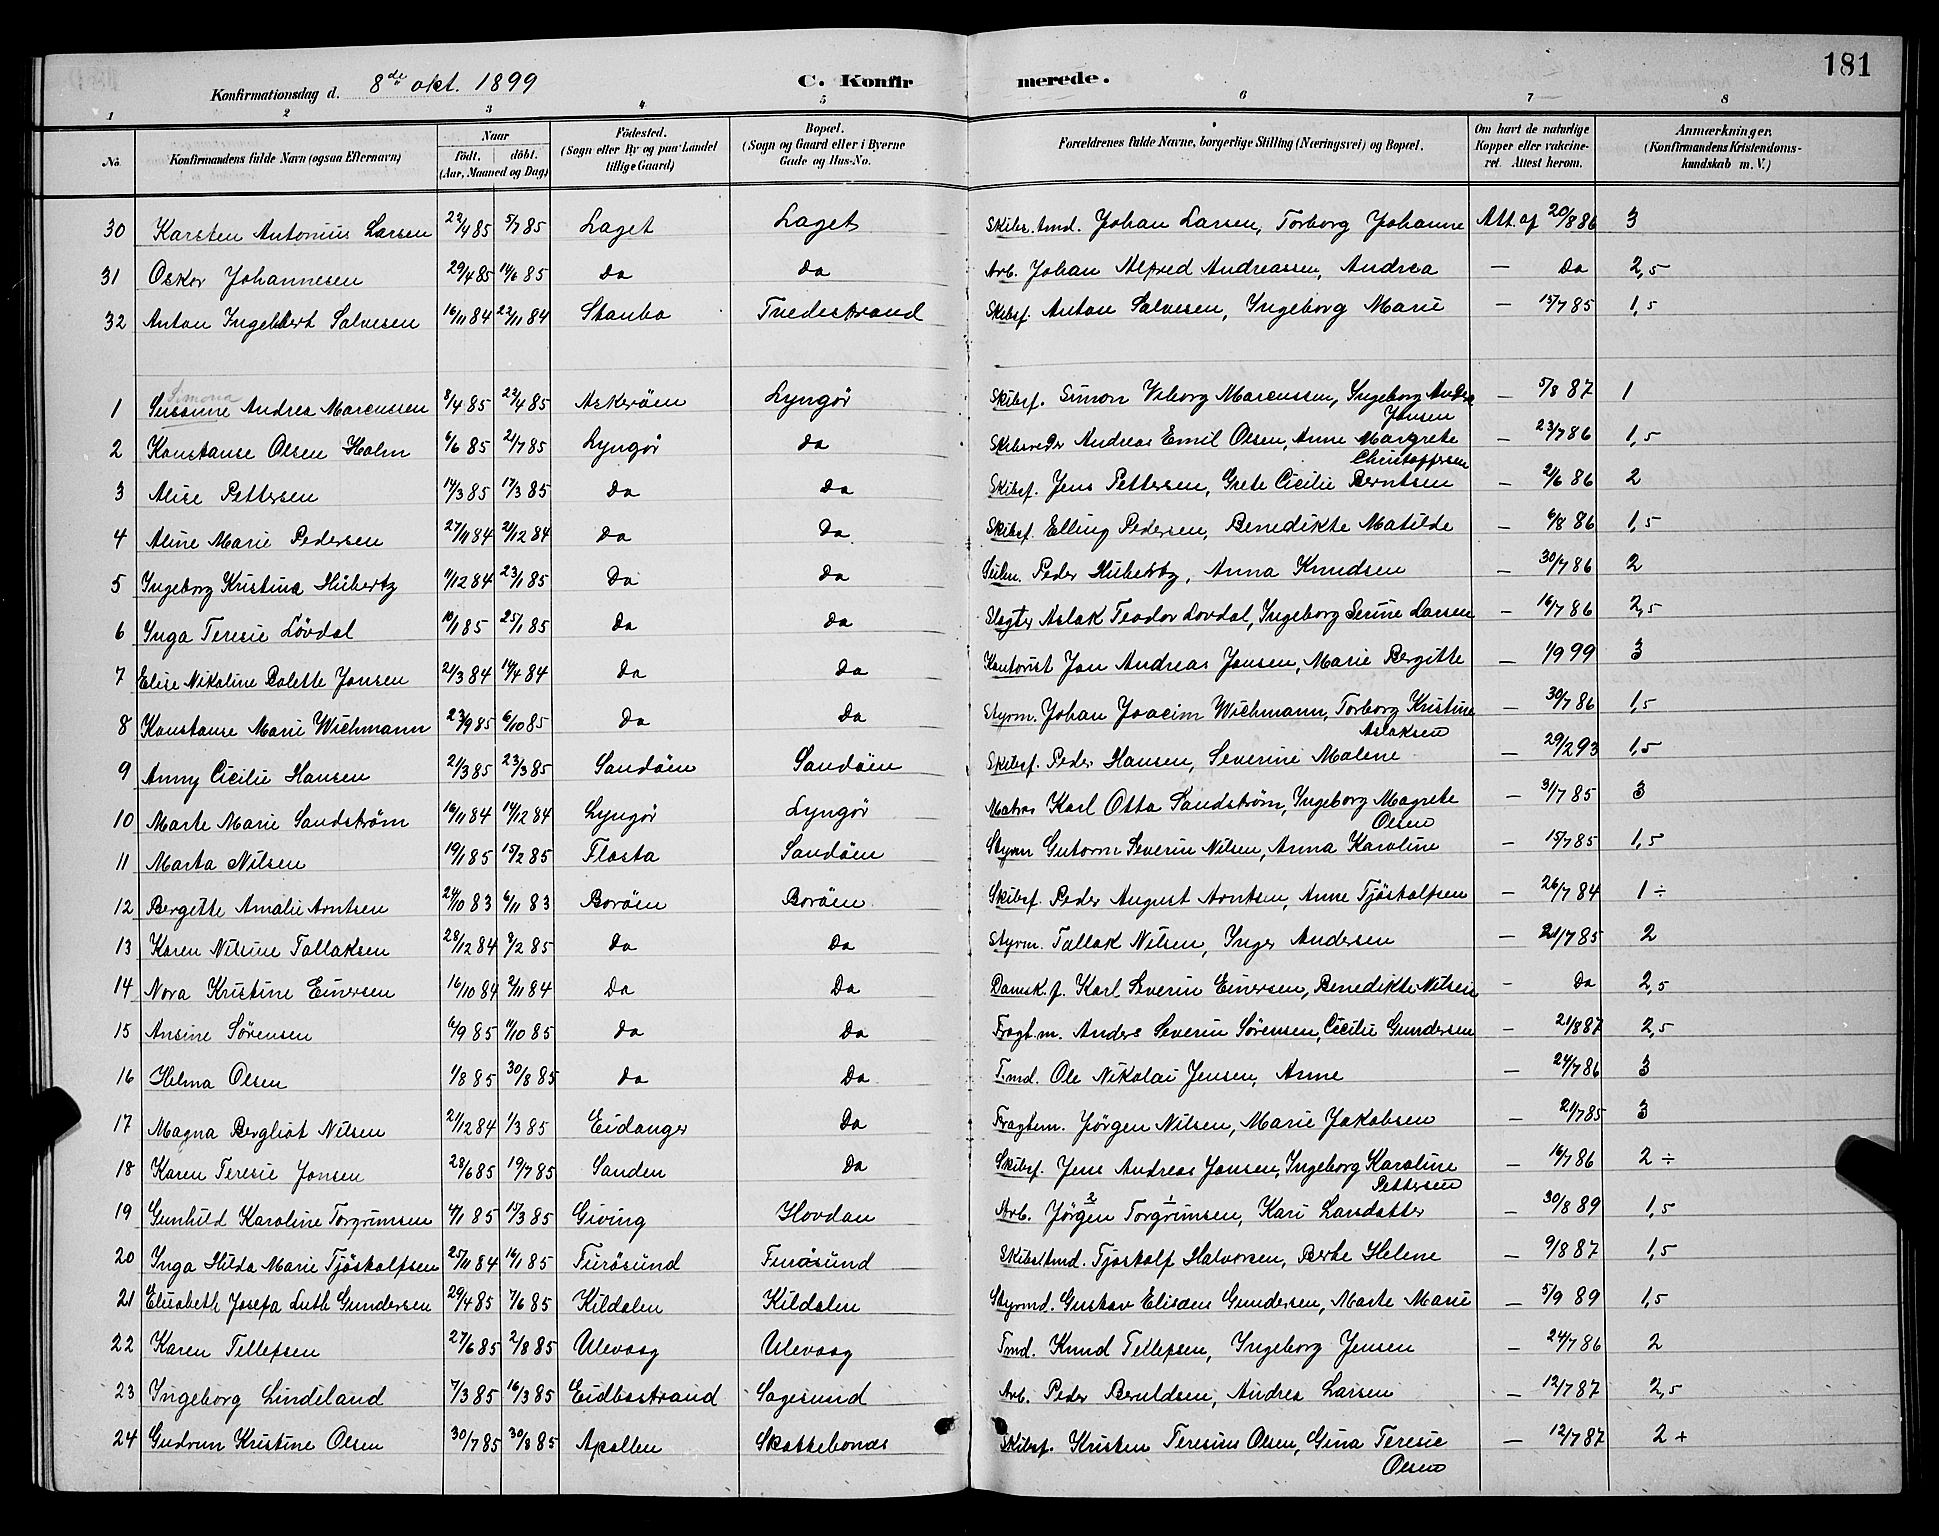 181
Konfirmationsdag d. 8de okt. 1899 C. Konfirmerede.
1 2 3 4 5 6 7 8
No. Konfirmandens fulde Navn (ogsaa Efternavn) Naar født. døbt. (Aar, Maaned og Dag) Fødested. (Sogn eller By og paa Landet tillige Gaard) Bopæl. (Sogn og Gaard eller i Byerne Gade og Hus-No. Forældrenes fulde Navne, borgerlige Stilling (Næringsvei) og Bopæl. Om havt de naturlige Kopper eller vakcineret. Attest herom. Anmærkninger. (Konfirmandens Kristendomskundskab m. V.)
30 Karsten Antonius Larsen 22/4 85 5/7 85 Laget Laget Skibs.tmd. Johan Larsen, Torborg Johanne Att. af 20/8 86 3
31 Oskar Johannesen 29/4 85 14/6 85 do do Arb. Johan Alfred Andreassen, Andrea — do 2,5
32 Anton Ingebert Salvesen 16/11 84 23/11 84 Stanbo Tvedestrand Skibsf. Anton Salvesen, Ingeborg Marie — 15/7 85 1,5
Simona
1 Sussinne Andrea Marcussen 8/4 85 22/4 85 Askerøen Lyngør Skibsf. Simon Viborg Marcussen, Ingeborg Andrea Jensen — 5/8 87 1
2 Konstanse Olsen Holm 6/6 85 21/7 85 Lyngør do Skibsreder Andreas Emil Olsen, Anne Margrete Christoffersen — 23/7 86 1,5
3 Alise Pettersen 14/3 85 17/3 85 do do Skibsf. Jens Pettersen, Grete Cicilie Berntsen — 2/6 86 2
4 Aline Marie Pedersen 27/11 84 21/12 84 do do Skibsf. Elling Pedersen, Benedikte Matilde — 6/8 86 1,5
5 Ingeborg Kristina Hübertz 11/12 84 23/1 85 do do Seilm. Peder Hübertz, Anna Knudsen — 30/7 86 2
6 Inga Teresie Løvdal 10/1 85 25/1 85 do do Slagter Aslak Teodor Lovdal, Ingeborg Serine Larsen — 16/7 86 2,5
7 Elise Nikoline Bolette Jansen 21/3 84 14/4 84 do do Kontorist Jan Andreas Jansen, Marie Bergitte — 1/9 99 3
8 Konstanse Marie Wichmann 23/9 85 6/10 85 do do Styrm. Johan Joacim Wichmann, Torborg Kristine Aslaksen — 30/7 86 1,5
9 Anny Cicilie Hansen 21/3 85 23/3 85 Sandøen Sandøen Skibsf. Peder Hansen, Severine Malene — 29/2 93 1,5
10 Marte Marie Sandstrøm 16/11 84 14/12 84 Lyngør Lyngør Matros Karl Otta Sandstrøm, Ingeborg Magrete Olsen — 31/7 85 3
11 Marta Nilsen 19/1 85 15/2 85 Flosta Sandøen Styrm Gutorm Severin Nilsen, Anna Karoline — 15/7 85 1,5
12 Bergitte Amalie Arntsen 24/10 83 6/11 83 Borøen Borøen Skibsf. Peder August Arntsen, Anne Tjøstolfsen — 26/7 84 1 ÷
13 Karen Nilsine Tallaksen 28/12 84 9/2 85 do do Styrm. Tallak Nilsen, Inger Andersen — 21/7 85 2
14 Nora Kristine Einersen 16/10 84 2/11 84 do do Damsk.f. Karl Severin Einersen, Benedikte Nilsen — do 2,5
15 Ansine Sørensen 6/9 85 11/10 85 do do Fragt.m. Anders Severin Sørensen, Cicilie Gundersen — 21/8 87 2,5
16 Helma Olsen 1/8 85 30/8 85 do do T.md. Ole Nikolai Jensen, Anne — 24/7 86 3
17 Magna Bergliot Nilsen 21/12 84 1/3 85 Eidanger do Fragtm. Jørgen Nilsen, Marie Jakobsen — 21/7 85 3
18 Karen Teresie Jonsen 28/6 85 19/7 85 Sanden do Skibsf. Jens Andreas Jonsen, Ingeborg Karoline Pettersen — 16/7 86 2 ÷
19 Gunhild Karoline Torgrimsen 4/1 85 15/3 85 Giving Hovdan Arb. Jørgen Torgrimsen, Kari Larsdatter — 30/8 89 1,5
20 Inga Hilda Marie Tjøstolfsen 25/11 84 16/1 85 Furøsund Furøsund Skibstmd. Tjøstolf Halvorsen, Berte Helene — 9/8 87 1,5
21 Elisabeth Josefa Luth Gundersen 29/4 85 7/6 85 Kildalen Kildalen Styrmd. Gustav Elisæus Gundersen, Marte Marie — 5/9 89 1,5
22 Karen Tellefsen 27/6 85 2/8 85 Ulevaag Ulevaag Tmd. Knud Tellefsen, Ingeborg Jensen — 24/7 86 2
23 Ingeborg Lindeland 7/3 85 16/3 85 Eidbostrand Sagesund Arb. Peder Beruldsen, Andrea Larsen — 12/7 87 2,5
24 Gudrun Kristine Olsen 30/7 85 30/8 85 Apallen Skottebones Skibsf. Kristen Teresius Olsen, Gina Teresie Olsen — 12/7 87 2 +